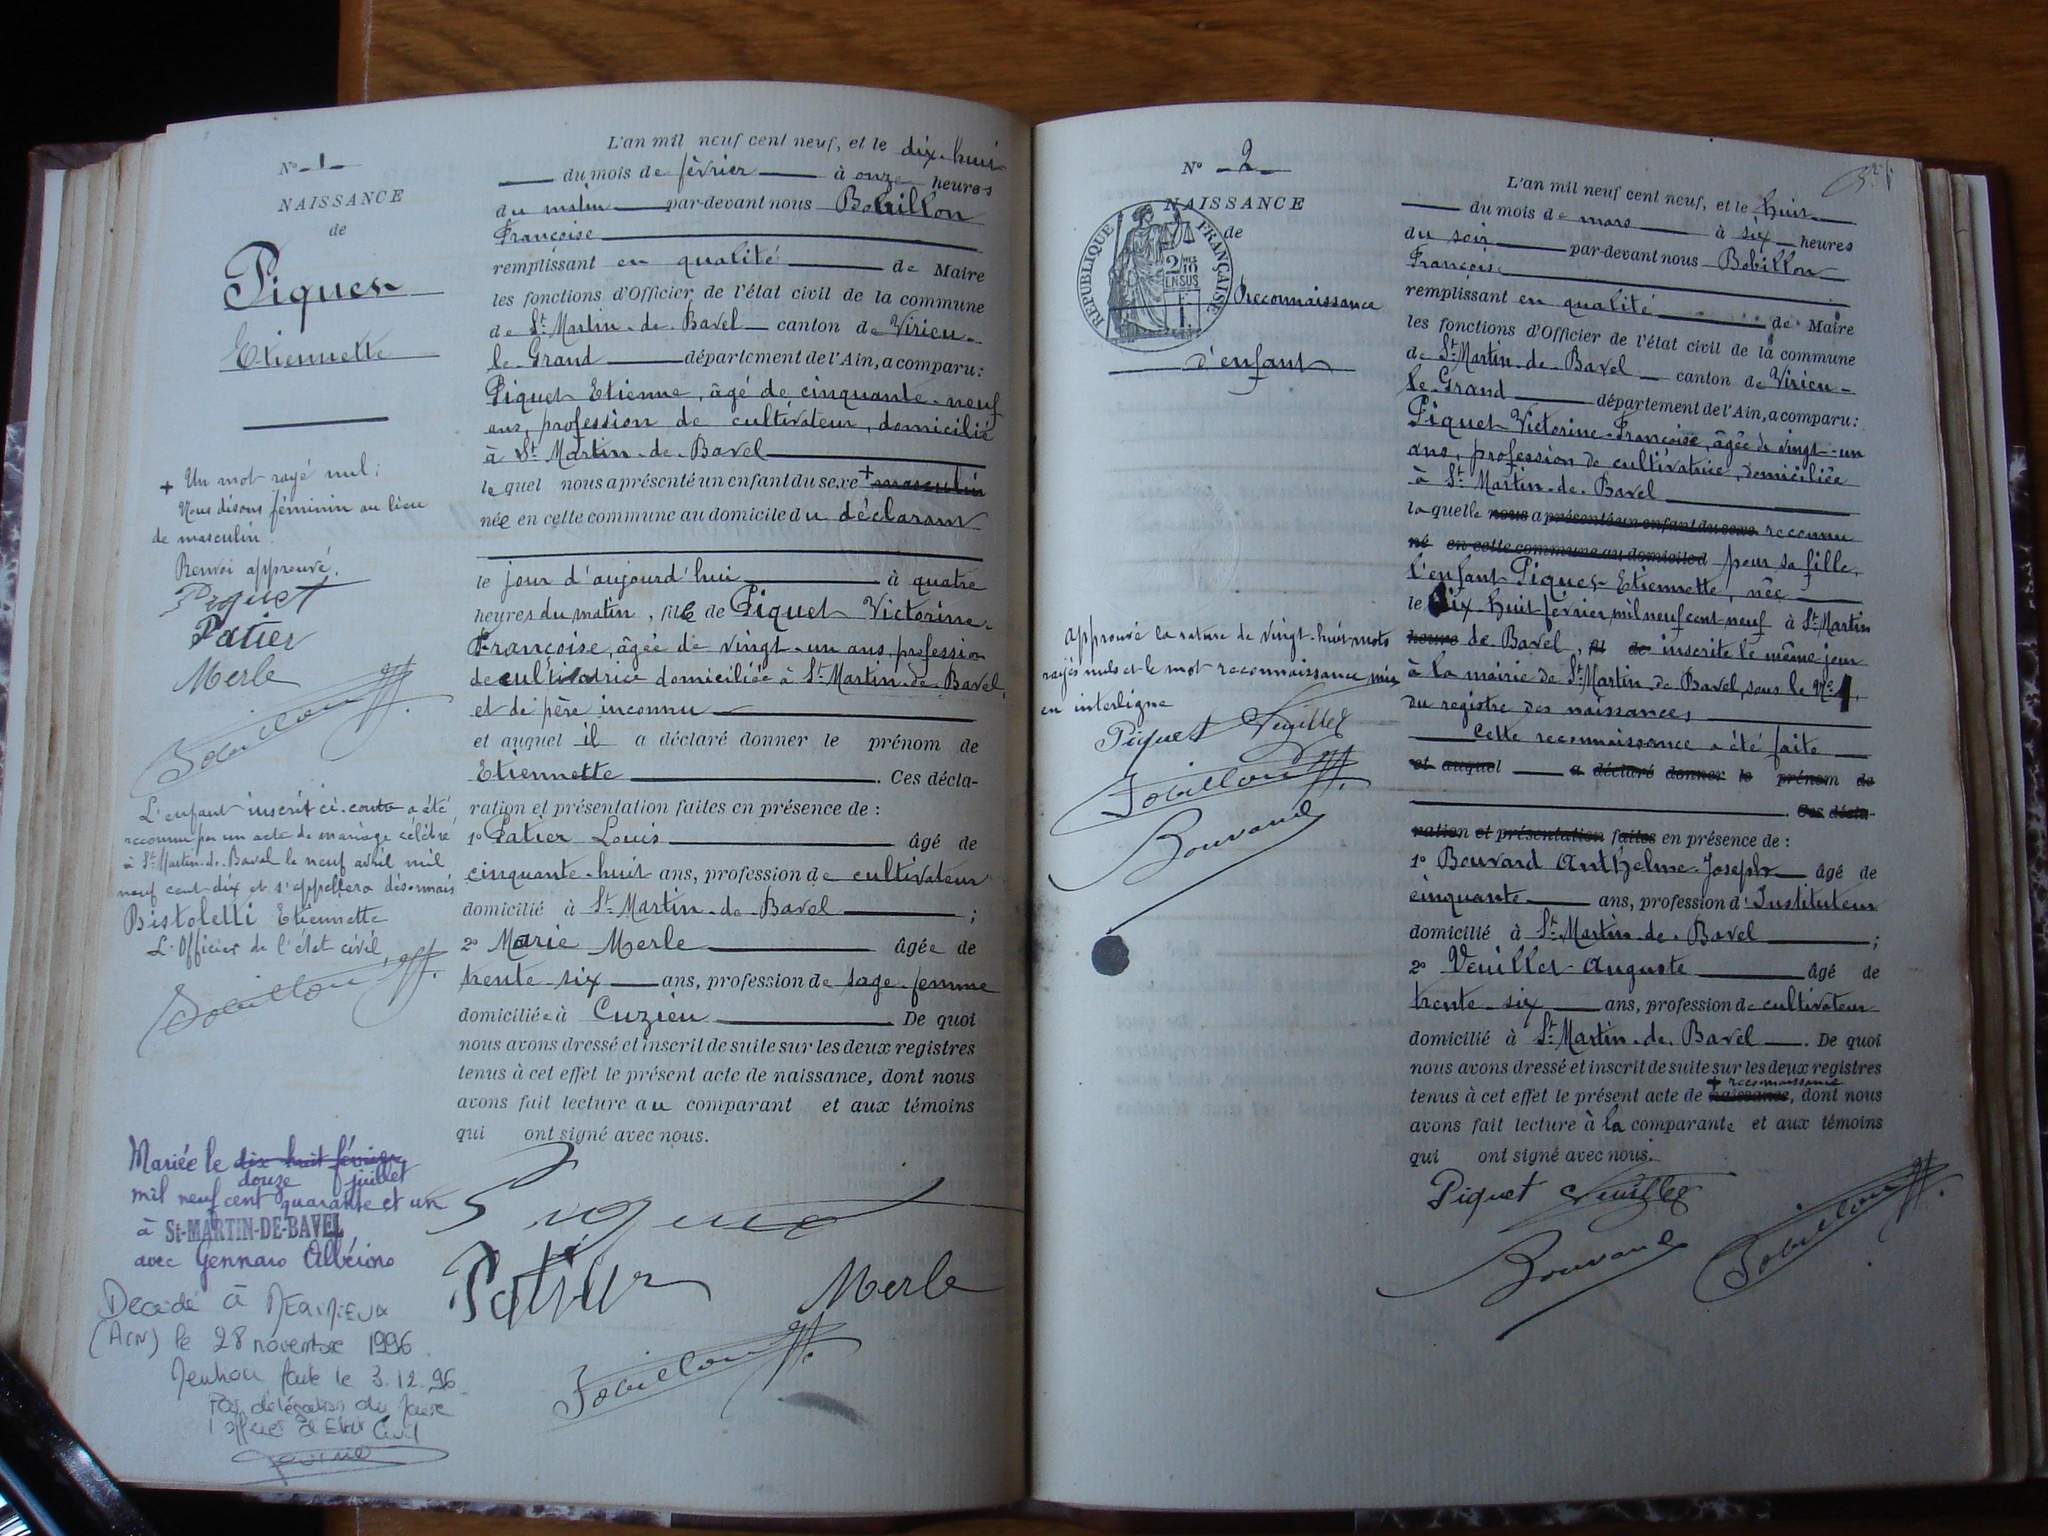 N° 1
NAISSANCE
de
Piquet
Etiennette
+ Un mot rayé nul:
Nous disons féminin au lieu
de masculin.
Renvoi approuvé.
Piquet
Patier
Merle
Bobillon
L'enfant inscrit ci-contre a été
reconnu par un acte de mariage célébré
à St Martin-de-Bavel le neuf avril mil
neuf cent dix et s'appellera désormais
Bistoletti Etiennette
L'Officier de l'état civil,
Bobillon
Mariée le dix huit février
douze juillet
mil neuf cent quarante et un
à St-MARTIN-DE-BAVEL
avec Gennaro Albérino
Décédé à
(Ain) le 28 novembre 1996
Mention faite le 3.12.96
Par délégation du Maire
l'officier d'Etat Civil
L'an mil neuf cent neuf, et le dix-huit
du mois de février à onze heures
du matin par-devant nous Bobillon
Françoise
remplissant en qualité de Maire
les fonctions d'Officier de l'état civil de la commune
de St Martin-de-Bavel canton de Virieu-
le-Grand département de l'Ain, a comparu:
Piquet Etienne, âgé de cinquante-neuf
ans, profession de cultivateur, domicilié
à St Martin-de-Bavel
lequel nous a présenté un enfant du sexe + masculin
née en cette commune au domicile du déclarant
le jour d'aujourd'hui à quatre
heures du matin, fille de Piquet Victorine-
Françoise, âgée de vingt-un ans, profession
de cultivatrice domiciliée à St Martin-de-Bavel,
et de père inconnu
et auquel il a déclaré donner le prénom de
Etiennette. Ces décla-
ration et présentation faites en présence de:
1° Patier Louis âgé de
cinquante-huit ans, profession de cultivateur
domicilié à St Martin-de-Bavel;
2° Marie Merle âgée de
trente-six ans, profession de sage-femme
domiciliée à Cuzieu De quoi
nous avons dressé et inscrit de suite sur les deux registres
tenus à cet effet le présent acte de naissance, dont nous
avons fait lecture au comparant et aux témoins
qui ont signé avec nous.
Piquet
Patier Merle
Bobillon
N° 2
NAISSANCE
de
RÉPUBLIQUE FRANÇAISE
2/10 EN SUS
Reconnaissance
d'enfant
Approuvé la rature de vingt-huit mots
rayés nuls et le mot reconnaissance mis
en interligne
Piquet Veuillet
Bobillon
Bouvand
L'an mil neuf cent neuf, et le huit
du mois de mars à six heures
du soir par-devant nous Bobillon
Françoise
remplissant en qualité de Maire
les fonctions d'Officier de l'état civil de la commune
de St Martin-de-Bavel canton de Virieu-
le-Grand département de l'Ain, a comparu:
Piquet Victorine-Françoise, âgée de vingt-un
ans, profession de cultivatrice, domiciliée
à St Martin-de-Bavel
laquelle nous a présenté un enfant du sexe reconnu
né en cette commune au domicile d pour sa fille,
l'enfant Piquet Etiennette, née
le dix-huit février mil neuf cent neuf à St Martin
heure de Bavel, fil de inscrite le même jour
à la mairie de St Martin-de-Bavel, sous le N° 1,
du registre des naissances
Cette reconnaissance a été faite
et auquel a déclaré donner le prénom de
. Ces décla-
ration et présentation faites en présence de:
1° Bouvard Anthelme-Joseph âgé de
cinquante ans, profession d'Instituteur
domicilié à St Martin-de-Bavel;
2° Veuillet Auguste âgé de
trente-six ans, profession de cultivateur
domicilié à St Martin-de-Bavel. De quoi
nous avons dressé et inscrit de suite sur les deux registres
+ reconnaissance
tenus à cet effet le présent acte de naissance, dont nous
avons fait lecture à la comparante et aux témoins
qui ont signé avec nous.
Piquet Veuillet
Bouvand Bobillon